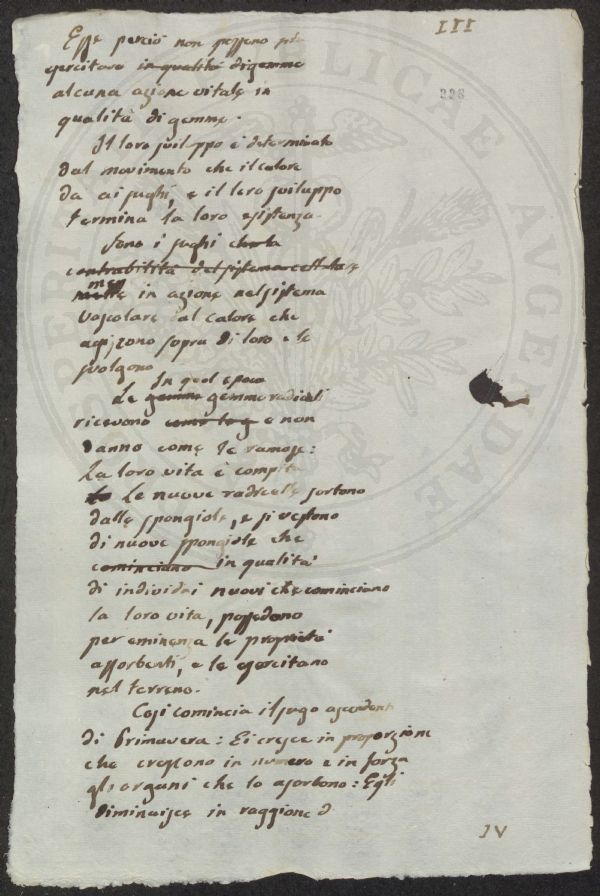 III
Esse perciò non possono più
esercitare in qualità di gemme
alcuna azione vitale in
qualità di gemme.
Il loro sviluppo è determinato
dal movimento che il calore
da ai sughi, e il loro sviluppo
termina la loro esistenza.
Sono i sughi che la
contrabilità del sistema cellulare
messe in azione nel sistema
vascolare dal calore che
agiscono sopra di loro e le
svolgono
In quel epoca
Le gemme gemme radicali
ricevono come le g e non
danno come le ramose:
La loro vita è compita
Le nuove radicelle sortono
dalle spongiole, e si vestono
di nuove spongiole che
cominciano in qualità
di individui nuovi che cominciano
la loro vita, possedono
per eminenza le proprietà
assorbenti, e le esercitano
nel terreno.
Così comincia il sugo ascendente
di Primavera: Ei cresce in proporzione
che crescono in numero e in forza
gli organi che lo asorbono: Egli
diminuisce in raggione d
IV